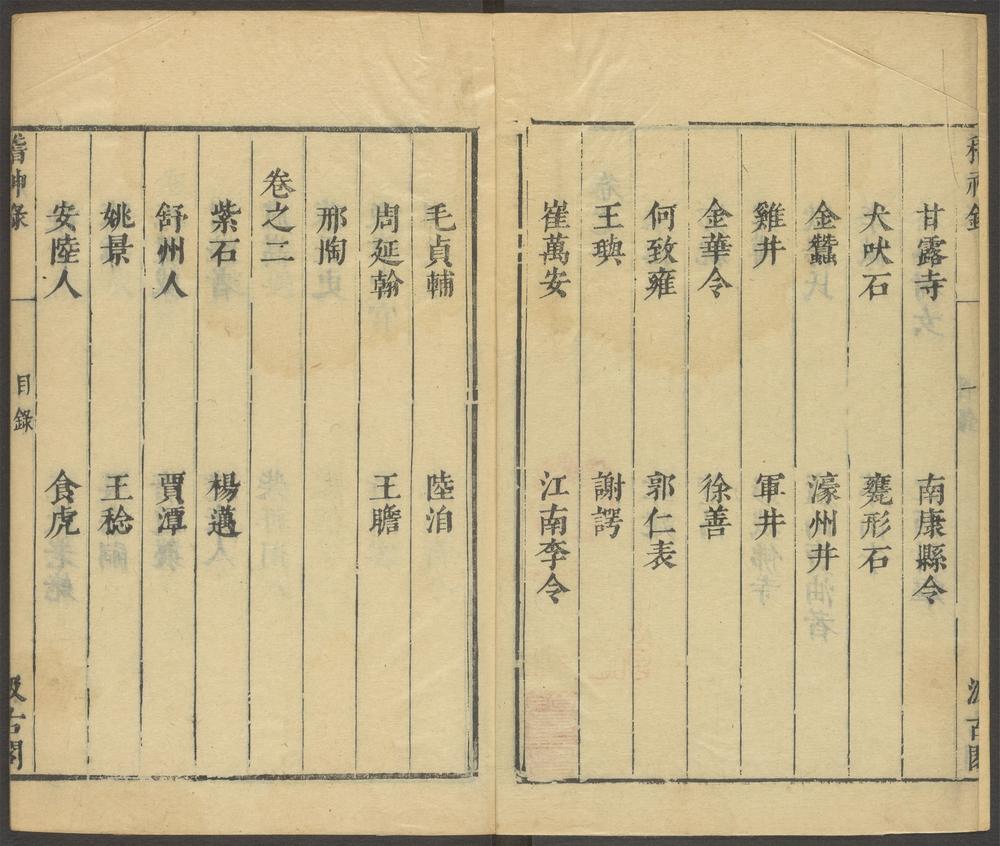 甘露寺　南康縣令
犬吠石　甕形石
金蠶　濠州井
雞井　軍井
金華令　徐善
何致雍　郭仁表
王璵　謝諤
崔萬安　江南李令
毛貞輔　陸洎
周延翰　王瞻
邢陶
卷之二
紫石　楊邁
舒州人　賈潭
姚景　王稔
安陸人　食虎
稽神錄　目錄　汲古閣